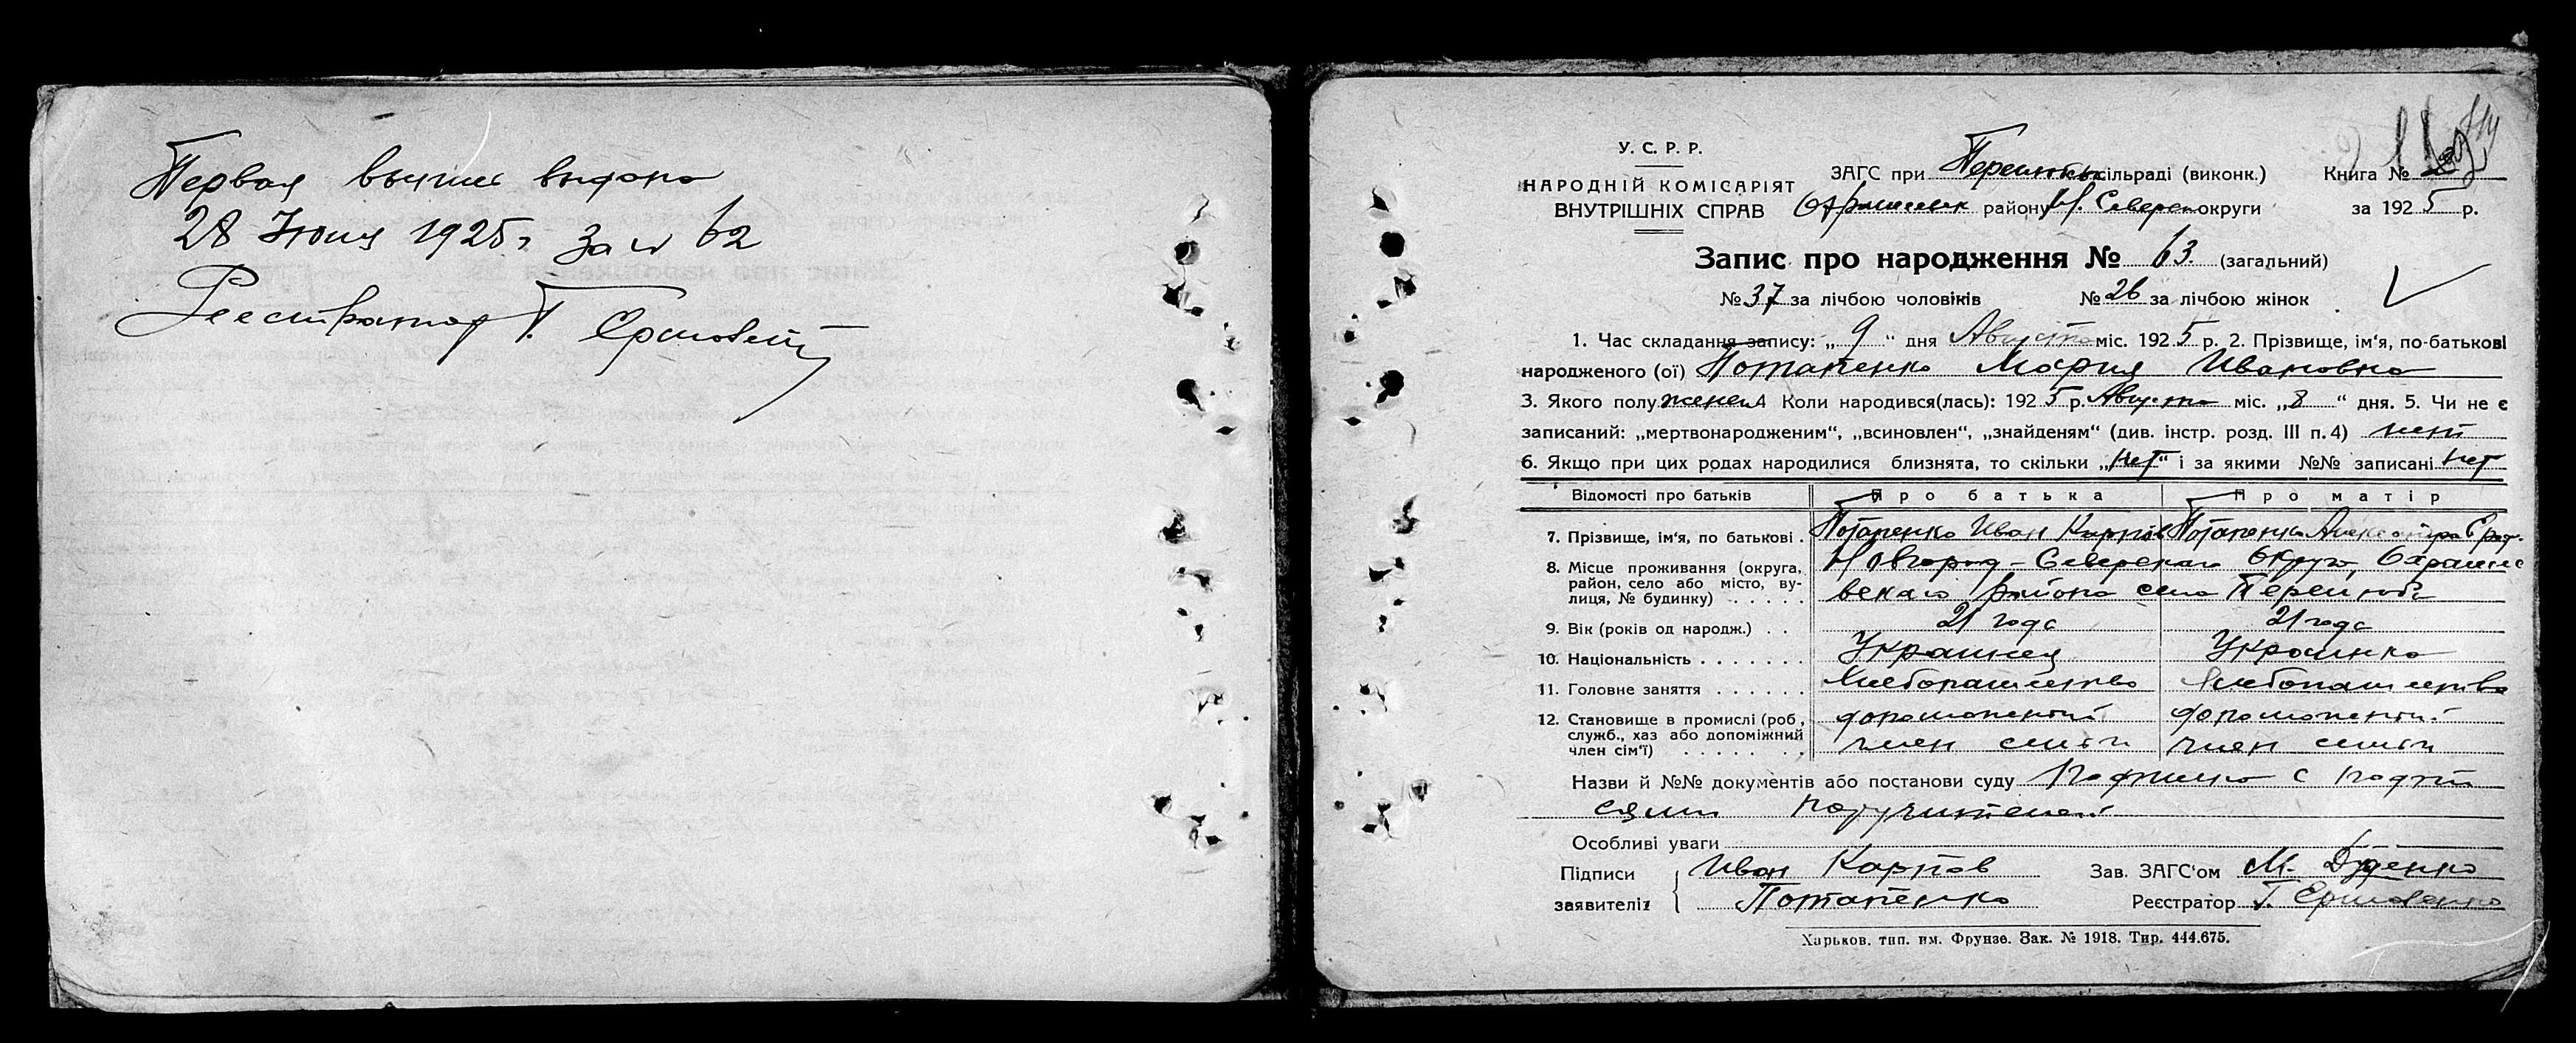 Первая выпись выдана
28 Июня 1925 г за № 62
Регистратор Т.
У. С. Р. Р.
НАРОДНІЙ КОМІСАРІЯТ
ВНУТРІШНІХ СПРАВ
ЗАГС при сільраді (виконк.)
району Н. Северск округи
Книга №
за 1925 р.
Запис про народження № 63. (загальний)
№ 37 за лічбою чоловіків № 26 за лічбою жінок
1. Час складання запису: „ 9 “ дня Августа міс. 1925 р. 2. Прізвище, ім‘я, по-батькові
народженого (ої) Потапенко Мария Ивановна
3. Якого полу женск 4 Коли народився(лась): 1925 р. Августа міс. „8 “ дня. 5. Чи не є
записаний: „мертвонародженим“, „всиновлен“, „знайденям“ (див. інстр. розд. III п. 4) нет
6. Якщо при цих родах народилися близнята, то скільки „нет“ і за якими №№ записані нет
Відомості про батьків Про батька Про матір
7. Прізвище, ім‘я, по батькові . Потапенко Иван Карпов Потапенко Александра
8. Місце проживання (округа, район, село або місто, вулиця, № будинку) Новгород-Северскаго округа,
района село Перелюба
9. Вік (років од народж.) . . 21 года 21 года
10. Національність . . . . . . . Украинец Украинка
11. Головне заняття . . . . . . Хлебопашество Хлебопашество
12. Становище в промислі (роб., служб., хаз або допоміжний член сім‘ї) допоможенный допоможенный
член семьи член семьи
Назви й №№ документів або постанови суду Подписка с подпи
сями поручителей
Особливі уваги
Підписи заявителів Иван Карпов
Потапенко
Зав. ЗАГС‘ом М. Дуденко
Реєстратор Т.
Харьков. тип. им. Фрунзе. Зак. № 1918. Тир. 444.675.